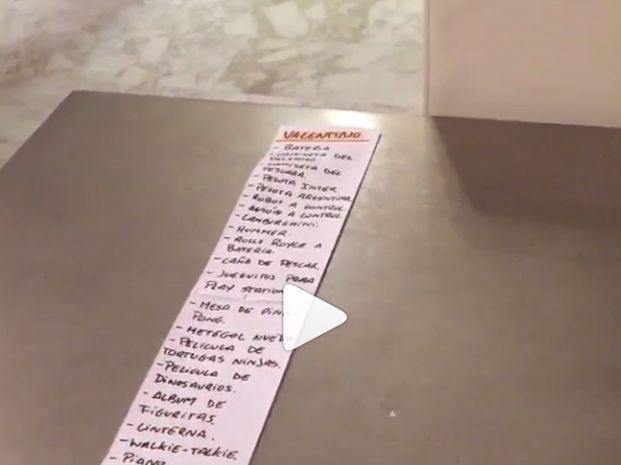 VALENTINO
- BATERIA
- CAMISETA DEL
PALERMO
- CAMISETA DEL
PESCARA.
- PELOTA INTER
- PELOTA ARGENTINA
- ROBOT A CONTROL
- AVION A CONTROL
- LAMBORGHINI.
- HUMMER.
- ROLLS ROYCE A
BATERIA.
- CAÑA DE PESCAR
- JUEGUITOS PARA
PLAY STATION
- MESA DE PING
PONG.
- METEGOL NUEVO
- PELICULA DE
TORTUGAS NINJAS.
- PELICULA DE
DINOSAURIOS.
- ALBUM DE
FIGURITAS.
- LINTERNA.
- WALKIE-TALKIE.